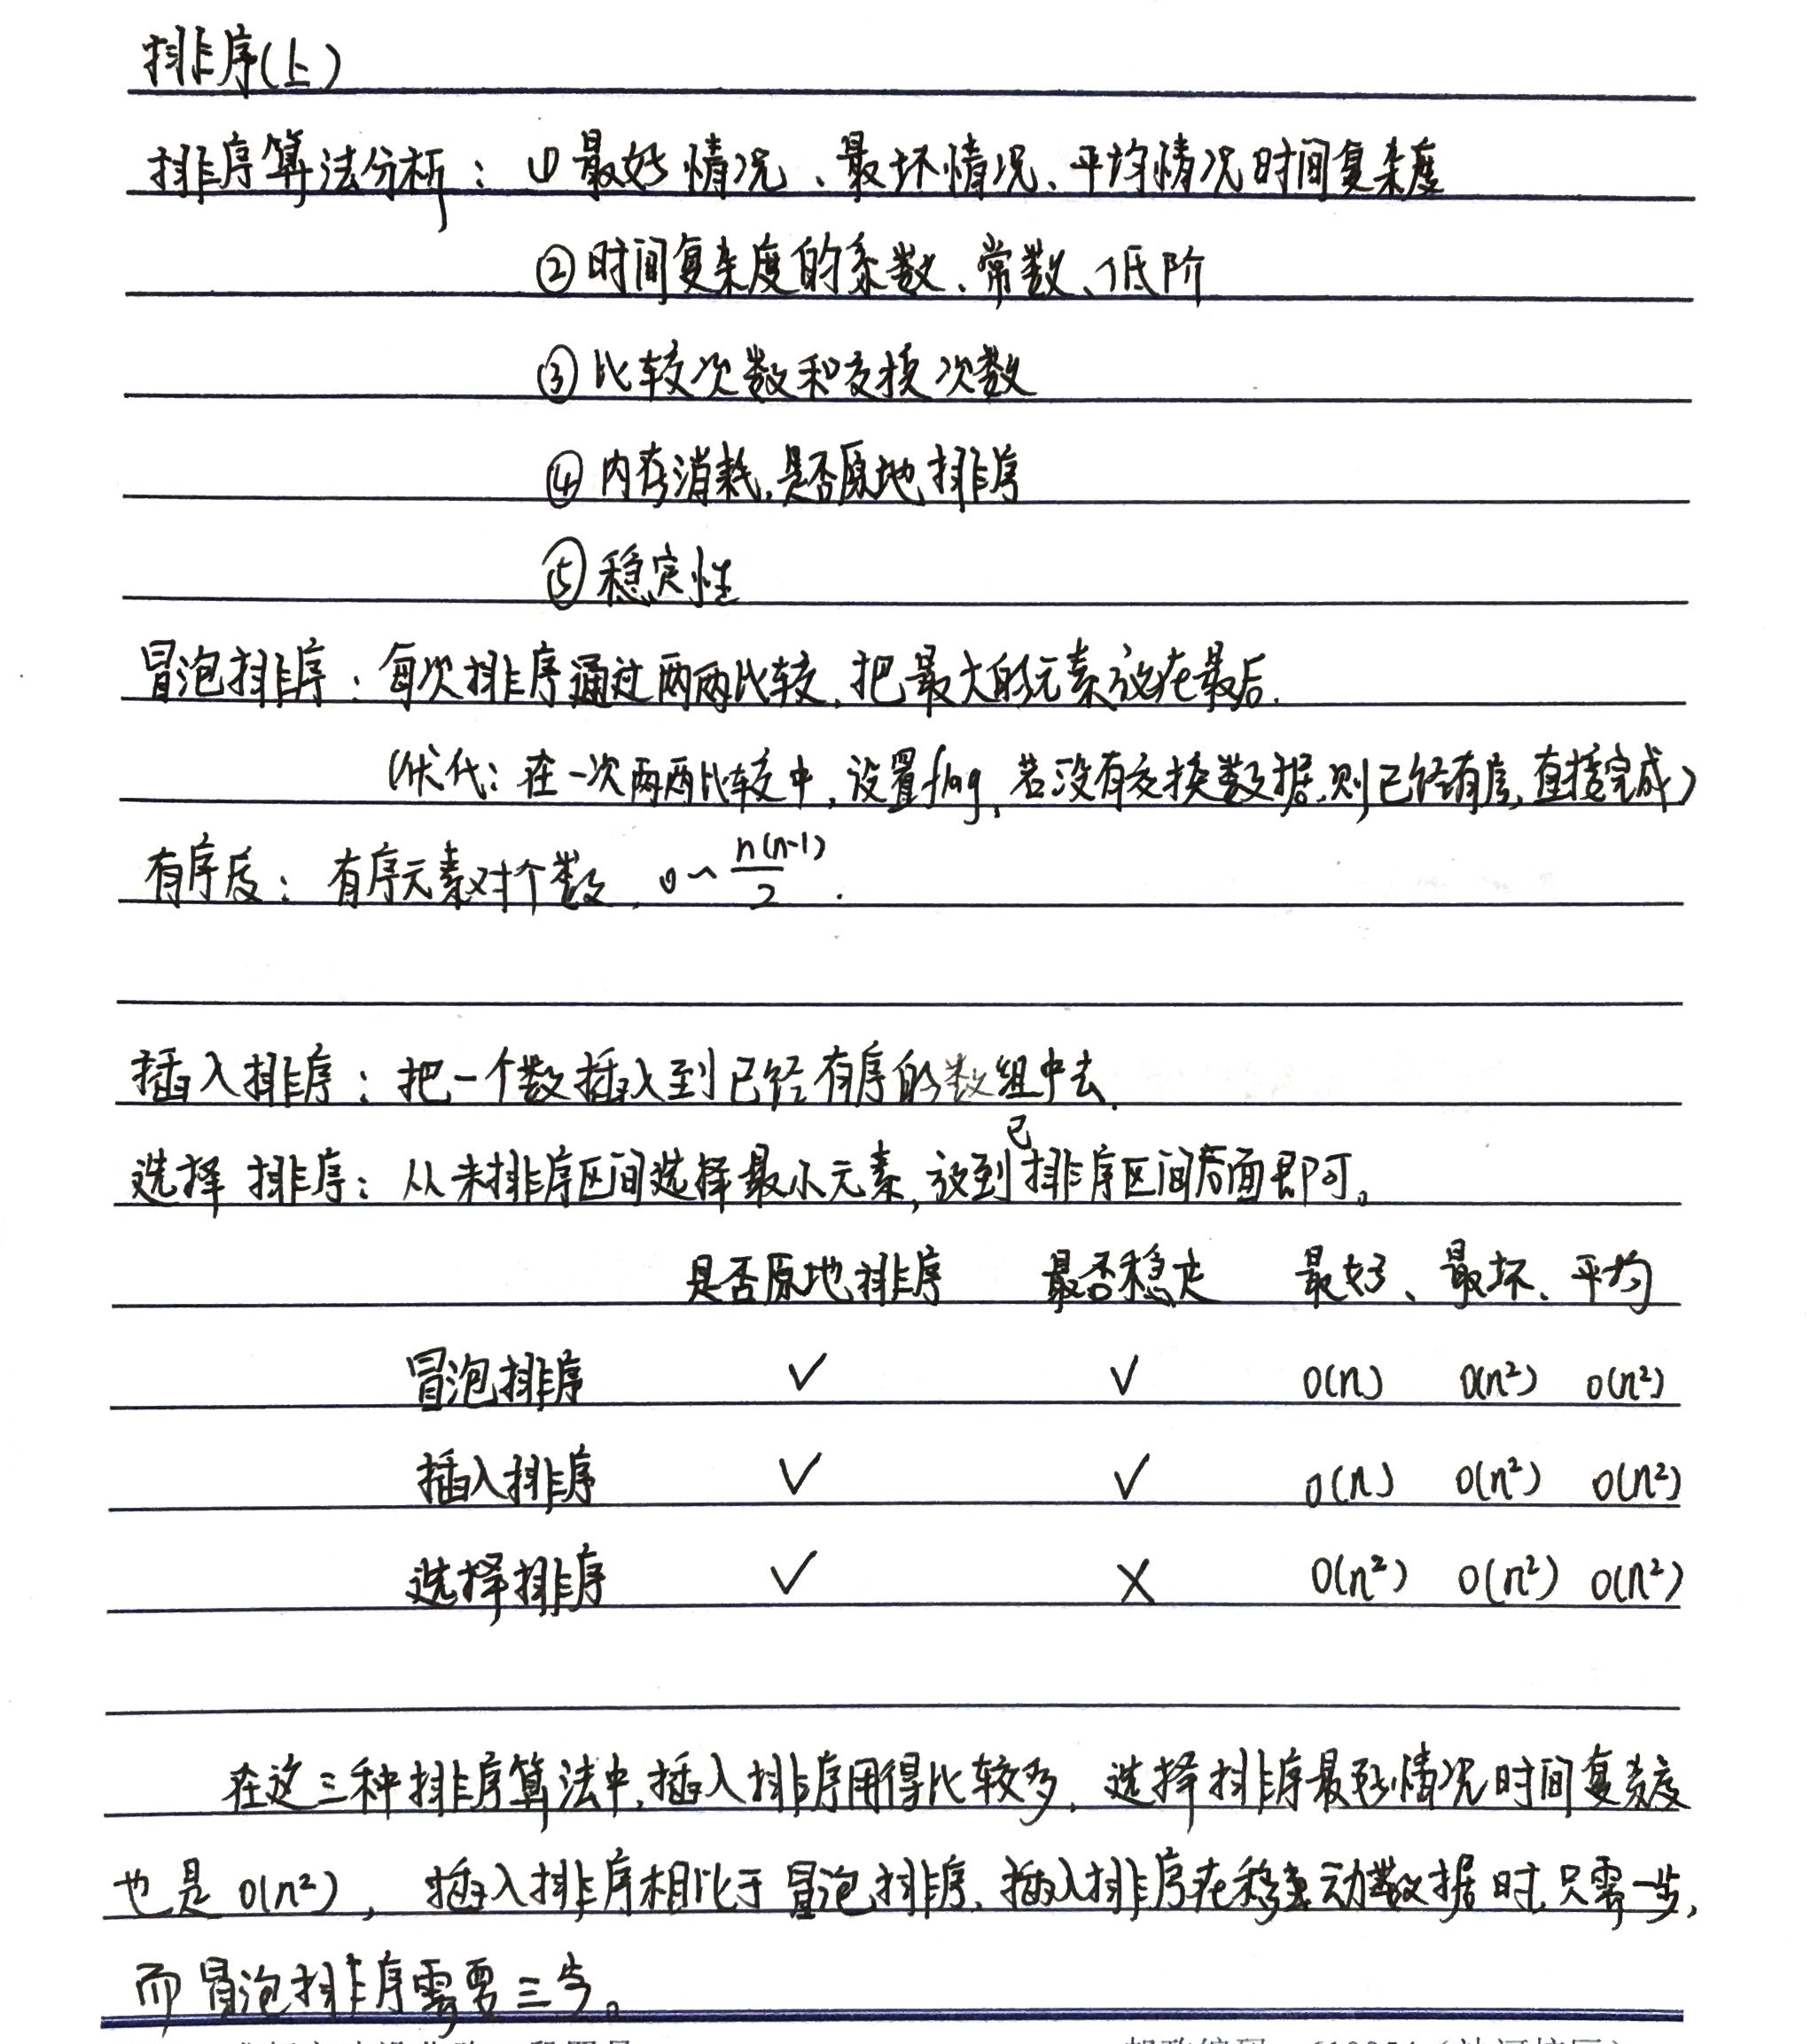 排序(上)
排序算法分析：①最好情况、最坏情况、平均情况时间复杂度
②时间复杂度的系数、常数、低阶
③比较次数和交换次数
④内存消耗，是否原地排序
⑤稳定性
冒泡排序：每次排序通过两两比较，把最大的元素放在最后.
(优化：在一次两两比较中，设置flag，若没有交换数据，则已经有序，直接完成)
有序度：有序元素对个数，0~n(n-1)/2.
插入排序：把一个数插入到已经有序的数组中去.
选择排序：从未排序区间选择最小元素，放到已排序区间后面即可。
是否原地排序 最否稳定 最好、最坏、平均
冒泡排序 ✓ ✓ O(n) O(n²) O(n²)
插入排序 ✓ ✓ O(n) O(n²) O(n²)
选择排序 ✓ × O(n²) O(n²) O(n²)
在这三种排序算法中，插入排序用得比较多，选择排序最好情况时间复杂度
也是O(n²)，插入排序相比于冒泡排序，插入排序在移动数据时，只需一步，
而冒泡排序需要三步。